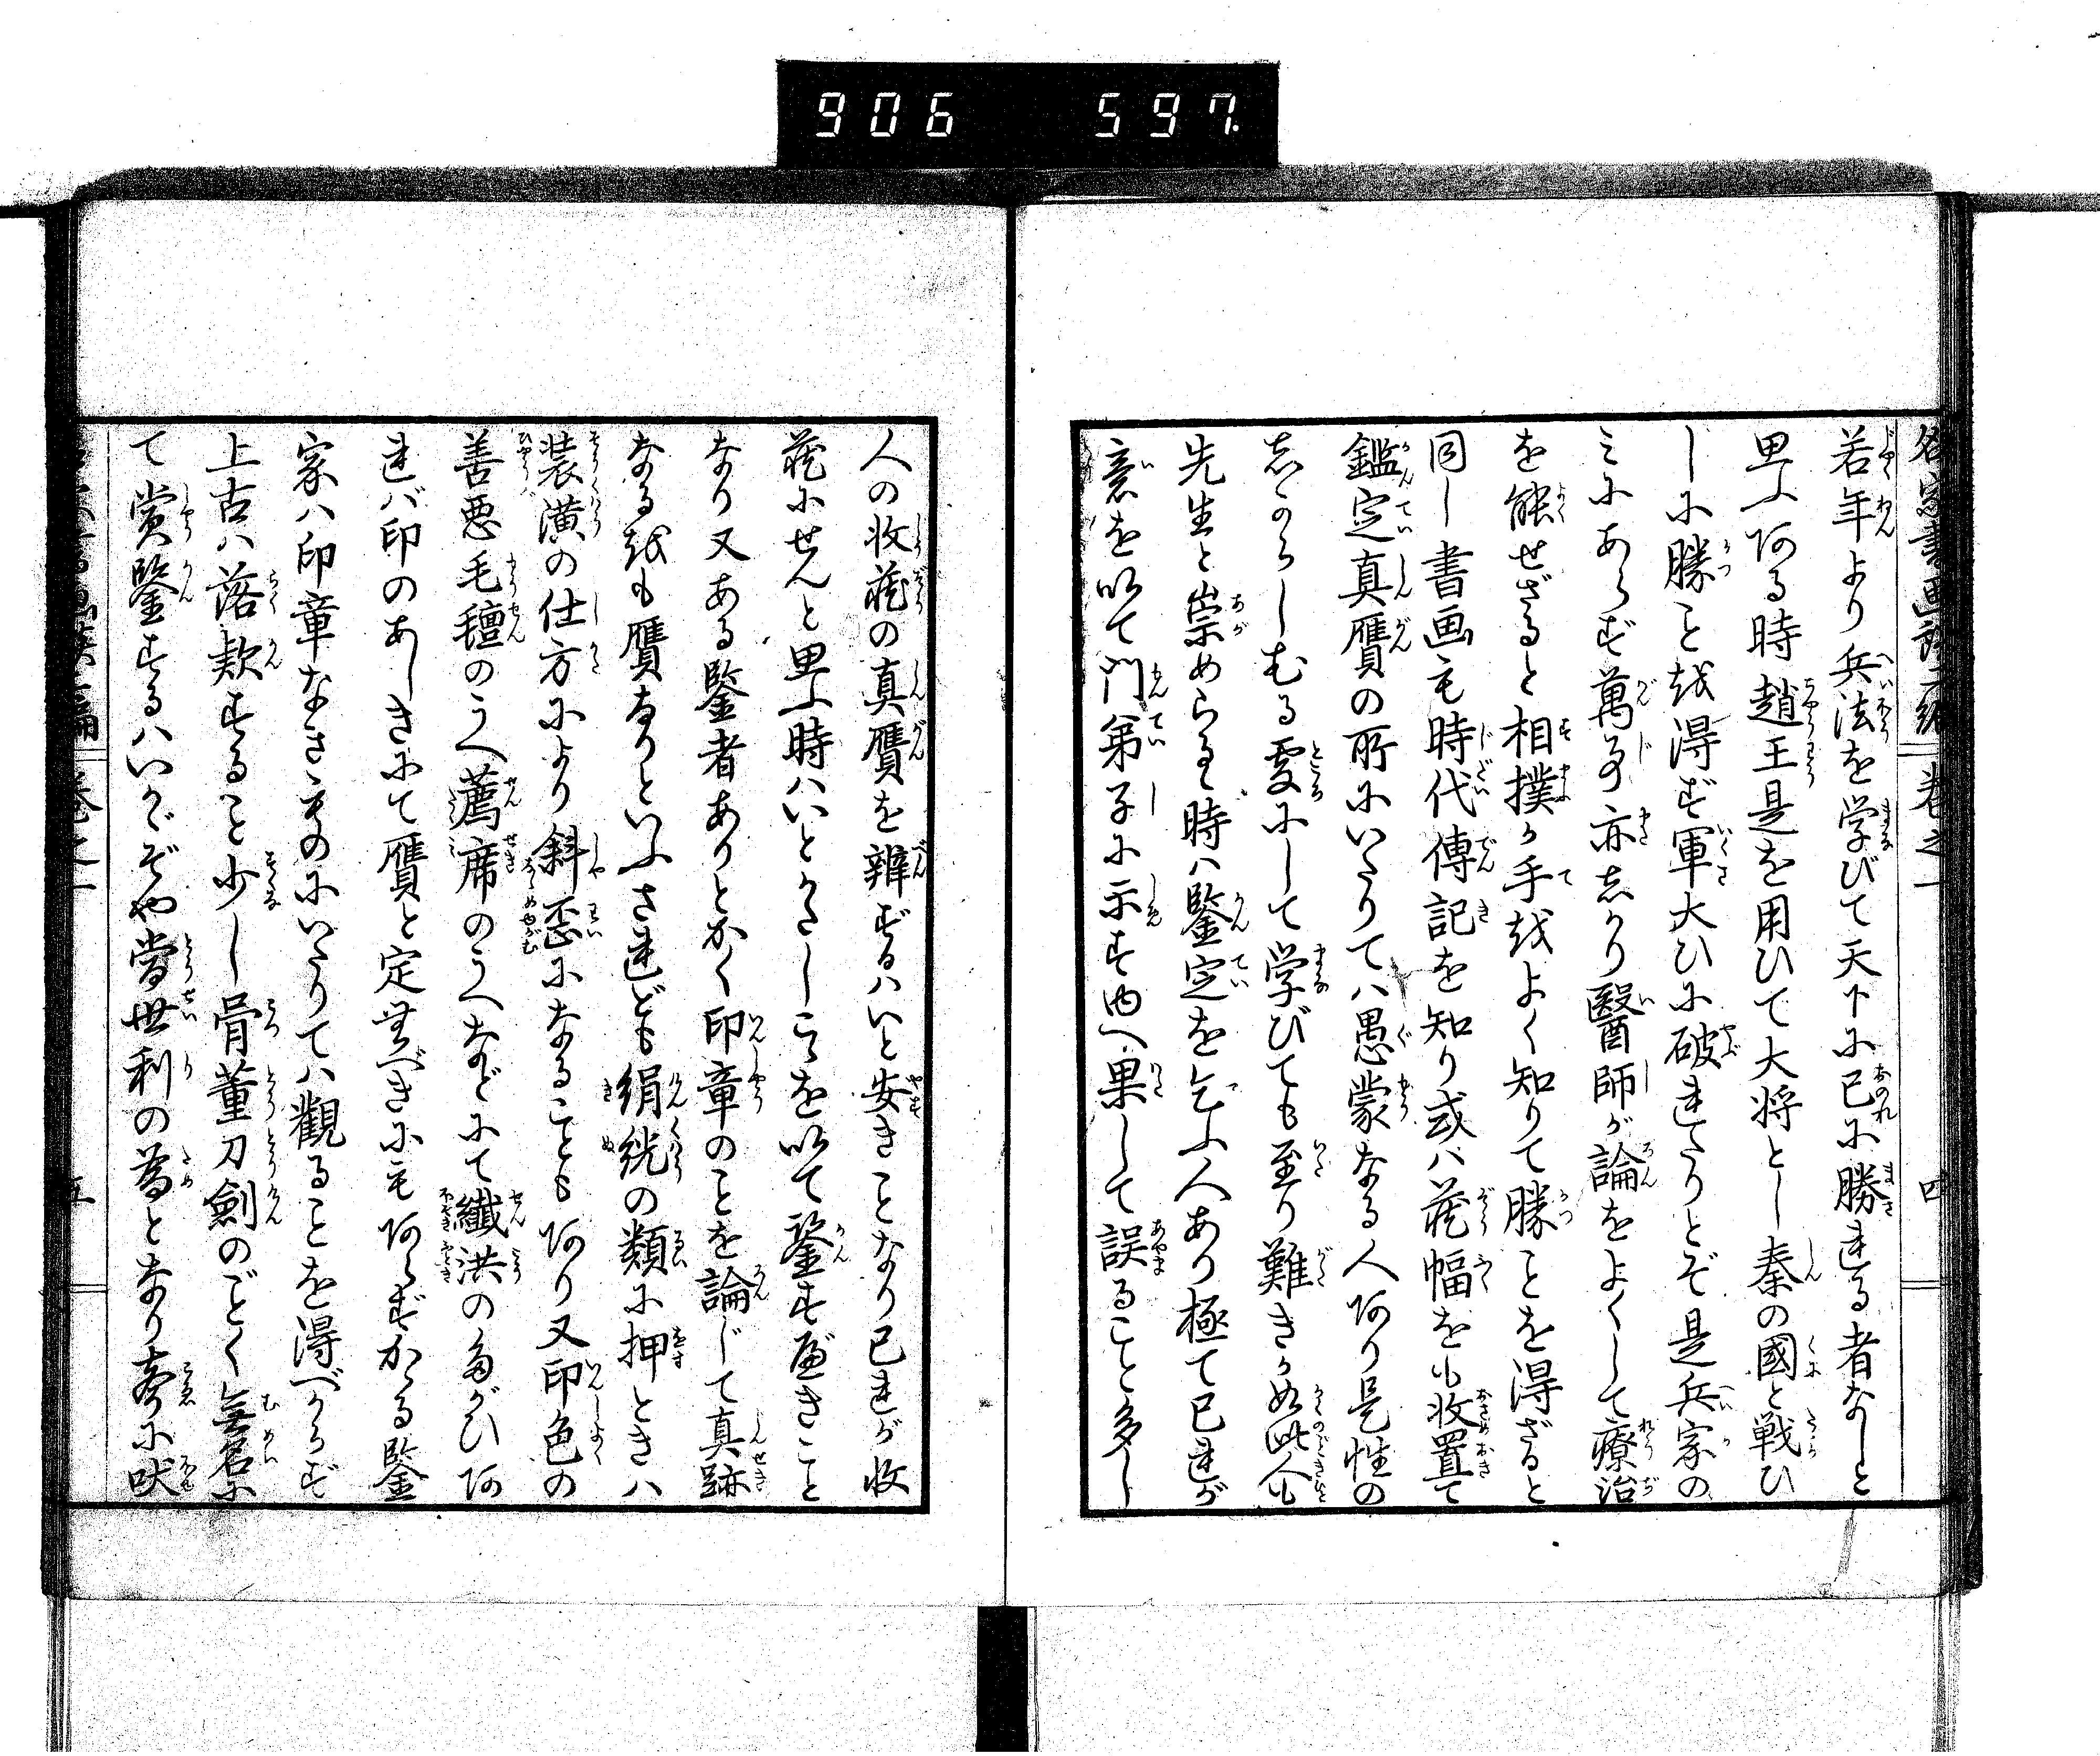 906 597
名家書画談二編 巻之一 四
若年より兵法を学びて天下に己に勝れる者なしと
思ふ阿る時趙王是を用ひて大将とし秦の國と戦ひ
しに勝こと越得ず軍大ひに破れたりとぞ是兵家の
ミにあらず萬事亦志かり醫師が論をよくして療治
を能せざると相撲が手越よく知りて勝ことを得ざると
同し書画も時代傳記を知り或ハ藏幅を も收置て
鑑定真贋の所にいたりてハ愚蒙なる人阿り是性の
志からしむる處にして学びても至り難きか如此人も
先生と崇めらるゝ時ハ鑒定を乞ふ人あり極て己れが
意を以て門弟子に示す 果して誤ること多し
人の收藏の真贋を辨ずるハいと安きことなり己れが收
藏にせんと思ふ時ハいとかたしこゝを以て鑒す
べきこと
なり又ある鑒者ありとかく印章のことを論じて真跡
なる越も贋なりといふされども絹絖の類に押ときハ
装潢の仕方により斜歪になることも阿り又印色の
善悪毛氊のうへ薦席のうへなどにて纎洪のたがひ阿
れバ印のあしきにて贋と定むべきにも阿らずかゝる鑒
家ハ印章なきものにいたりてハ觀ることを得べからず
上古ハ落款すること少し骨董刀劍のごとく無名に
て賞鑒するハいかゞぞや當世利の為となり奇に吠
巻之一 五